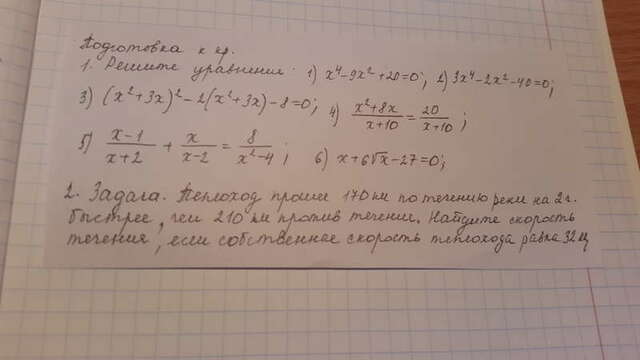 Подготовка к кр.
1. Решите уравнения: 1) x⁴-9x²+20=0; 2) 3x⁴-2x²-40=0;
3) (x²+3x)²-2(x²+3x)-8=0; 4) (x²+8x)/(x+10) = 20/(x+10);
5) (x-1)/(x+2) + x/(x-2) = 8/(x²-4); 6) x+6√x-27=0;
2. Задача. Теплоход прошел 170 км по течению реки на 2 ч.
быстрее, чем 210 км против течения. Найдите скорость
течения, если собственная скорость теплохода равна 32 км